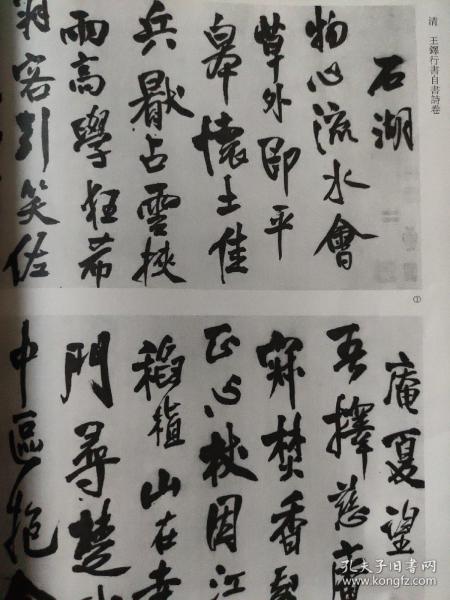 清 王鐸行書自書詩卷
石湖
物心流水會
草外即平
皋懷土佳
兵厭占雲挾
雨高學狂希
客引笑佐
①
庵夏望
吾擇慈
寐焚香
正心杖因江
稻植山在
門尋楚
中區抱
孔夫子旧书网
www.kongfz.com